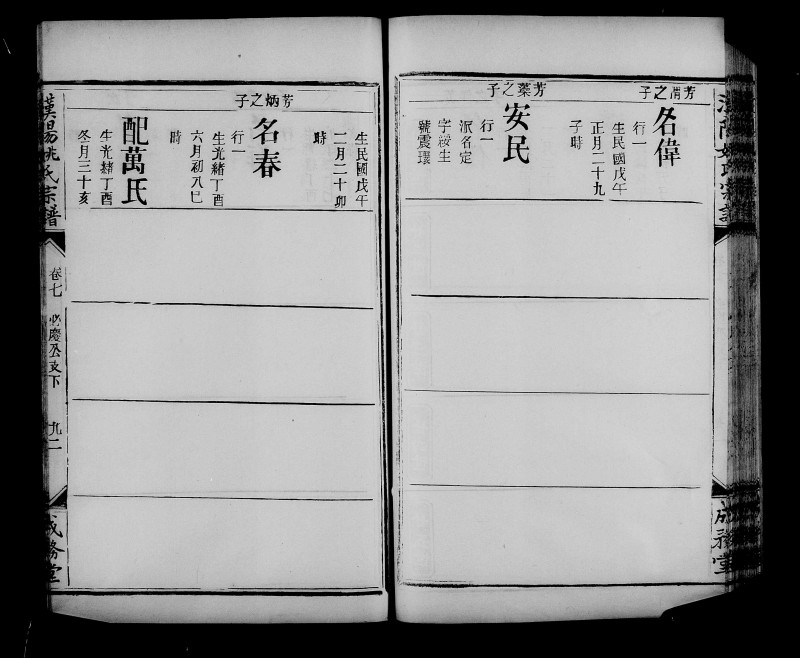 子之渭芳
名偉
行一
生民國戊午
正月二十九
子時
子之藻芳
安民
行一
派名定
字綏生
號震環
生民國戊午
二月二十卯
時
子之炳芳
名春
行一
生光緒丁酉
六月初八巳
時
配萬氏
生光緒丁酉
冬月三十亥
漢陽姚氏宗譜
卷七
必慶公支下
九二
成務堂
漢陽姚氏宗譜
成務堂